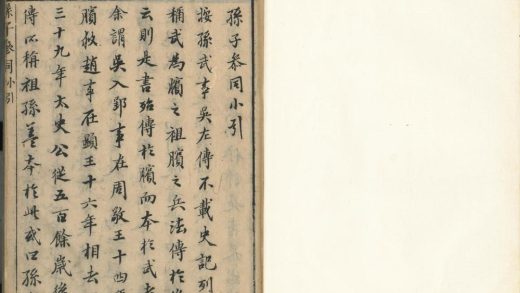 孫子參同小引
按孫武事吳左傳不載史記列
稱武為臏之祖臏之兵法傳於
云則是書殆傳於臏而本於武
余謂吳入郢事在周敬王十四
臏敗趙事在顯王十六年相去
三十九年太史公從五百餘歲後
傳以稱祖孫蓋本於此或曰孫
孫子參同小引